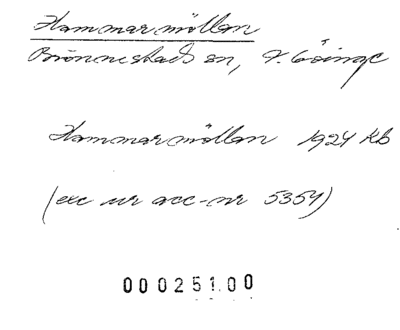 Hammarmöllan
Brönnestads sn, V. Göinge
Hammarmöllan 1924 Kb
(exc ur acc-nr 5354)
000251.00